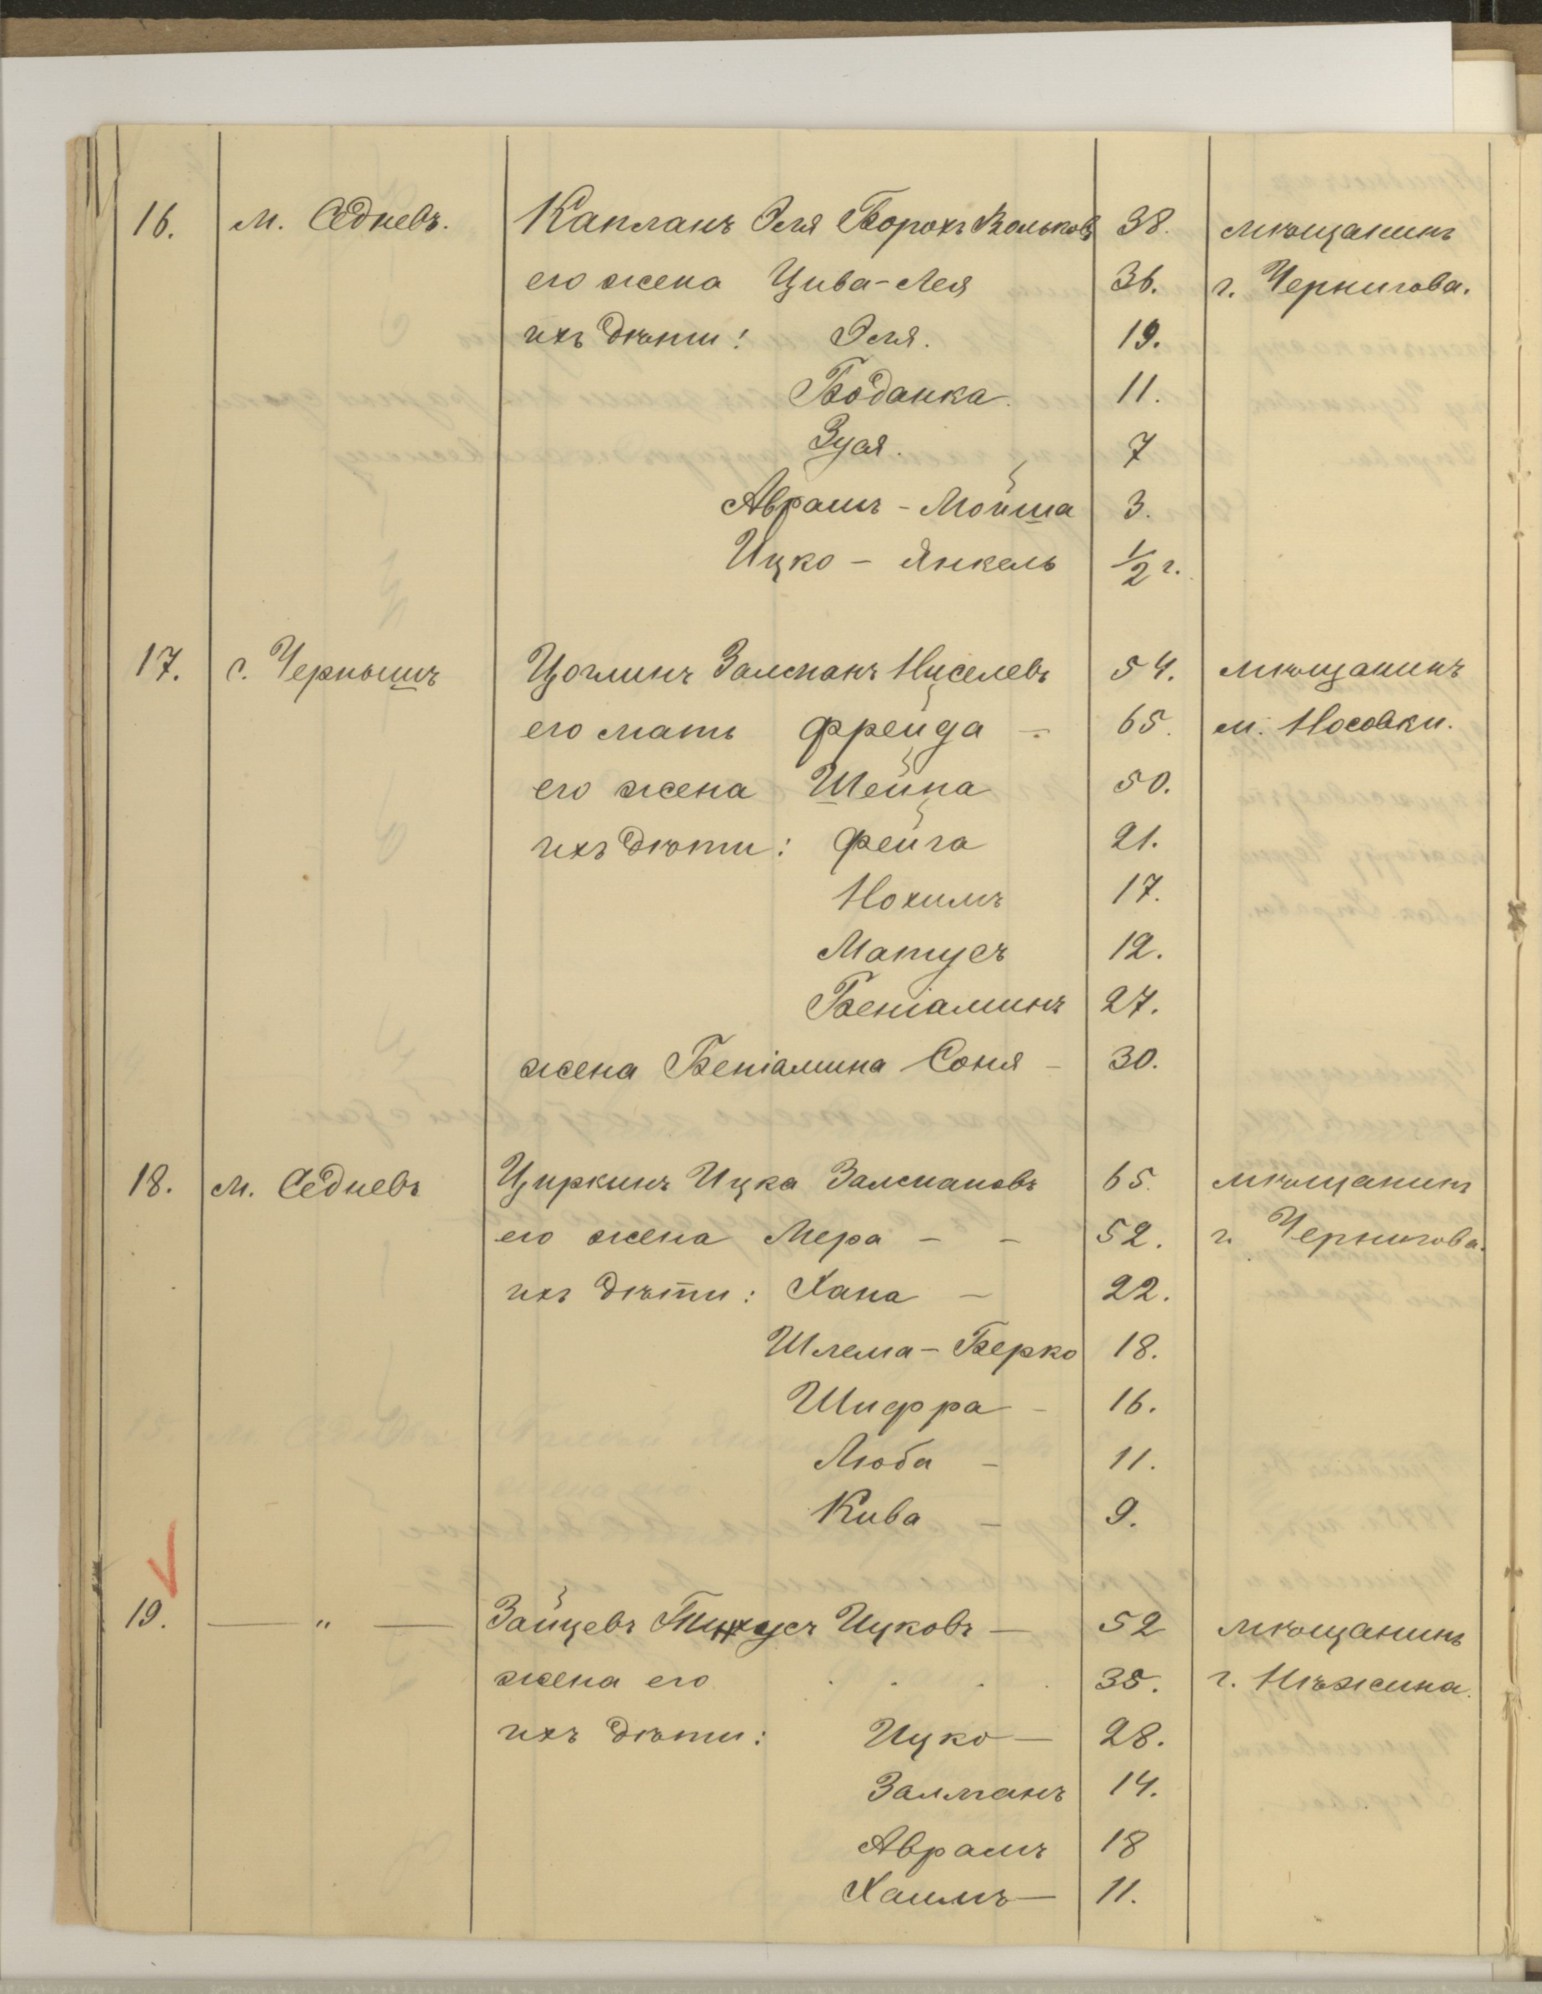 16. м. Седневъ. Капланъ Эля Борохъ Вольковъ 38. мѣщанинъ
его жена Цива-Лея 36. г. Чернигова.
ихъ дѣти: Эля. 19.
Боданка. 11.
Зуся. 7
Аврамъ - Мойша 3.
Ицко - Янкель 1/2 г.
17. с. Чернышъ Цоглинъ Залманъ Ниселевъ 54. мѣщанинъ
его мать Фрейда - 65. м. Носовки.
его жена Шейна 50.
ихъ дѣти: Фейга 21.
Нохимъ 17.
Матусъ 12.
Беніаминъ 27.
жена Беніамина Соня - 30.
18. м. Седневъ Циркинъ Ицка Залмановъ 65. мѣщанинъ
его жена Мера - - 52. г. Чернигова.
ихъ дѣти: Хана - 22.
Шлема - Берко 18.
Шифра - 16.
Люба - 11.
Кива - 9.
19. — " — Зайцевъ Ицковъ — 52 мѣщанинъ
жена его . . . . 35. г. Нѣжина.
ихъ дѣти: Ицко — 28.
Залманъ 14.
Аврамъ 18
Хаимъ — 11.